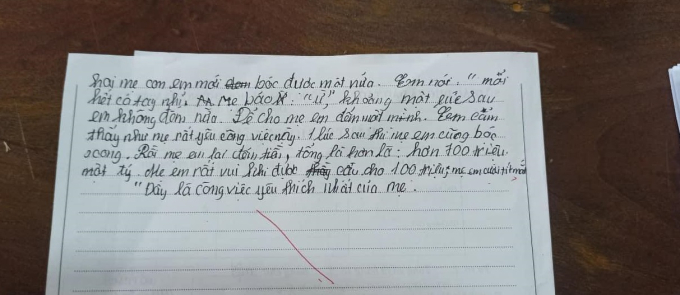 hai mẹ con em mới đem bóc được một nửa. Em nói: "mỏi
hết cả tay nhỉ. Mẹ bảo: "ừ," khoảng một lúc sau
em không đếm nữa. Để cho mẹ em đếm một mình. Em cảm
thấy như mẹ rất yêu công việc này. 1 lúc sau thì mẹ em cũng bóc
xong. Rồi mẹ em lại đếm tiền, tổng là hơn là: hơn 100 triệu
một tý. Mẹ em rất vui khi được cầm cho 100 triệu, mẹ em cười tít mắt
"Đây là công việc yêu thích nhất của mẹ.